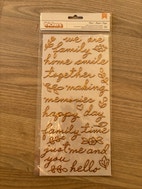 we are
family
home smile
together
making
memories
happy day
family time
just me and
you
hello